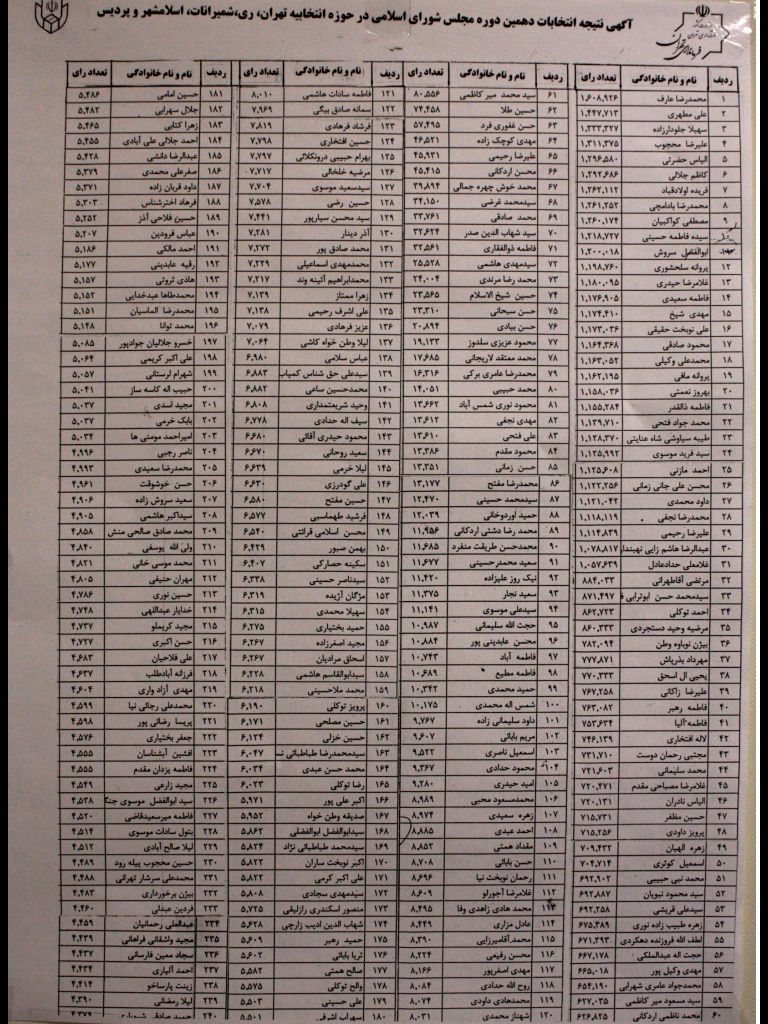 آگهی نتیجه انتخابات دهمین دوره مجلس شورای اسلامی در حوزه انتخابیه تهران، ری، شمیرانات، اسلامشهر و پردیس
ردیف نام و نام خانوادگی تعداد رای
۱ محمدرضا عارف ۱,۶۰۸,۹۲۶
۲ علی مطهری ۱,۴۴۷,۷۱۳
۳ سهیلا جلودارزاده ۱,۳۳۳,۳۲۷
۴ علیرضا محجوب ۱,۳۱۱,۳۷۵
۵ الیاس حضرتی ۱,۲۹۶,۵۸۰
۶ کاظم جلالی ۱,۲۹۲,۶۸۶
۷ فریده اولادقباد ۱,۲۶۲,۱۱۲
۸ محمدرضا بادامچی ۱,۲۶۱,۲۵۲
۹ مصطفی کواکبیان
سیده فاطمه حسینی ۱,۲۱۸,۷۲۷
ابوالفضل سروش ۱,۲۰۰,۰۱۸
۱۲ پروانه سلحشوری ۱,۱۹۸,۷۶۰
۱۳ غلامرضا حیدری ۱,۱۸۰,۰۹۵
۱۴ فاطمه سعیدی ۱,۱۷۶,۹۰۵
۱۵ مهدی شیخ ۱,۱۷۴,۴۱۰
۱۶ علی نوبخت حقیقی ۱,۱۷۳,۰۳۶
۱۷ محمود صادقی ۱,۱۶۴,۳۶۸
۱۸ محمدعلی وکیلی ۱,۱۶۳,۰۵۲
۱۹ پروانه مافی ۱,۱۶۲,۱۹۵
۲۰ بهروز نعمتی ۱,۱۵۸,۰۳۶
۲۱ فاطمه ذالقدر ۱,۱۵۵,۲۸۴
۲۲ محمد جواد فتحی ۱,۱۳۹,۷۱۰
۲۳ طیبه سیاوشی شاه عنایتی ۱,۱۲۸,۳۷۰
۲۴ سید فرید موسوی ۱,۱۲۵,۹۹۲
۲۵ احمد مازنی ۱,۱۲۵,۶۰۸
۲۶ محسن علی جانی زمانی ۱,۱۲۲,۲۵۶
۲۷ داود محمدی ۱,۱۲۱,۰۴۲
۲۸ محمدرضا نجفی ۱,۱۱۸,۱۱۹
۲۹ علیرضا رحیمی ۱,۱۱۴,۸۳۹
۳۰ عبدالرضا هاشم زایی ۱,۰۷۸,۸۱۷
۳۱ غلامعلی حدادعادل ۱,۰۵۷,۶۳۹
۳۲ مرتضی آقاطهرانی ۸۸۴,۰۳۳
۳۳ سیدمحمد حسن ابوترابی ۸۷۱,۴۹۷
۳۴ احمد توکلی ۸۶۲,۷۲۳
۳۵ مرضیه وحید دستجردی ۸۶۰,۳۳۳
۳۶ بیژن نوباوه وطن ۷۸۲,۰۹۴
۳۷ مهرداد بذرپاش ۷۷۷,۸۷۱
۳۸ یحیی آل اسحق ۷۷۰,۳۳۳
۳۹ علیرضا زاکانی ۷۶۷,۲۵۸
۴۰ فاطمه رهبر ۷۶۳,۰۸۲
۴۱ فاطمه آلیا ۷۵۳,۶۳۴
۴۲ لاله افتخاری ۷۴۶,۱۳۹
۴۳ مجتبی رحمان دوست ۷۳۱,۷۱۰
۴۴ محمد سلیمانی ۷۲۱,۶۰۳
۴۵ غلامرضا مصباحی مقدم ۷۲۰,۴۷۱
۴۶ الیاس نادران ۷۲۰,۱۳۱
۴۷ حسین مظفر ۷۱۵,۷۳۱
۴۸ پرویز داودی ۷۱۵,۲۵۶
۴۹ زهره الهیان ۷۰۹,۴۳۲
۵۰ اسمعیل کوثری ۷۰۴,۷۱۴
۵۱ محمد نبی حبیبی ۶۹۲,۹۰۲
۵۲ سید محمود نبویان ۶۹۲,۸۸۷
۵۳ سیدعلی قریشی ۶۹۲,۳۵۸
۵۴ زهره طبیب زاده نوری ۶۷۵,۳۸۹
۵۵ لطف الله فروزنده دهکردی ۶۷۱,۳۹۳
۵۶ حجت اله عبدالملکی ۶۶۷,۱۷۸
۵۷ مهدی وکیل پور ۶۶۵,۰۱۸
۵۸ محمدجواد عامری شهرابی ۶۵۴,۱۹۰
۵۹ سید مسعود میر کاظمی ۶۲۷,۰۳۵
۶۰ محمد ناظمی اردکانی ۶۲۶,۸۲۵
ردیف نام و نام خانوادگی تعداد رای
۶۱ سید محمد میر کاظمی ۸۰,۵۵۶
۶۲ حسین طلا ۷۴,۴۵۸
۶۳ حسن غفوری فرد ۵۷,۴۹۵
۶۴ مهدی کوچک زاده ۴۶,۵۲۱
۶۵ علیرضا رحیمی ۴۵,۹۳۱
۶۶ محسن اردکانی ۴۵,۴۱۵
۶۷ محمد خوش چهره جمالی ۳۹,۸۹۴
۶۸ سیدمحمد غرضی ۳۴,۱۵۰
۶۹ محمد صادقی ۳۳,۷۶۱
۷۰ سید شهاب الدین صدر ۳۲,۶۲۴
۷۱ فاطمه ذوالفقاری ۳۲,۵۶۱
۷۲ سیدمهدی هاشمی ۲۵,۵۲۸
۷۳ محمد رضا مرندی ۲۴,۰۰۴
۷۴ حسین شیخ الاسلام ۲۳,۵۶۵
۷۵ حسن سبحانی ۲۳,۳۱۰
۷۶ حسن بیادی ۲۰,۸۹۴
۷۷ محمود عزیزی سلدوز ۱۹,۱۳۳
۷۸ محمد معتقد لاریجانی ۱۷,۶۸۵
۷۹ محمدرضا عامری برکی ۱۶,۳۱۶
۸۰ محمد حبیبی ۱۴,۰۵۱
۸۱ محمود نوری شمس آباد ۱۳,۶۶۲
۸۲ مهدی نجفی ۱۳,۶۱۲
۸۳ علی فتحی ۱۳,۶۱۰
۸۴ محمود مقدم ۱۳,۳۸۶
۸۵ حسن زمانی ۱۳,۳۵۱
۸۶ محمدرضا مفتح ۱۳,۱۷۷
۸۷ سیدمحمد حسینی ۱۲,۴۷۰
۸۸ حمید آوردوخانی ۱۲,۰۳۹
۸۹ محمد رضا دشتی اردکانی ۱۱,۹۵۶
۹۰ محمدحسن طریقت منفرد ۱۱,۶۸۵
۹۱ سعید محمدرحسینی ۱۱,۶۷۷
۹۲ نیک روز علیزاده ۱۱,۴۲۰
۹۳ سعید نجار ۱۱,۳۷۵
۹۴ سیدعلی موسوی ۱۱,۱۴۱
۹۵ حجت الله سلیمانی ۱۰,۹۸۷
۹۶ محسن عابدینی پور ۱۰,۸۸۴
۹۷ فاطمه آباد ۱۰,۷۴۳
۹۸ فاطمه مطیع ۱۰,۶۸۹
۹۹ حمید محمدی ۱۰,۳۴۲
۱۰۰ شمس اله محمدی ۱۰,۱۷۵
۱۰۱ داود سلیمانی زاده ۹,۷۶۷
۱۰۲ مریم بابائی ۹,۶۰۷
۱۰۳ اسمعیل ناصری ۹,۵۲۲
۱۰۴ محمود حدادی ۹,۳۶۷
۱۰۵ امید حیدری ۹,۲۸۰
۱۰۶ محمدمسعود محبی ۸,۹۸۹
۱۰۷ زهره سعیدی ۸,۹۷۴
۱۰۸ احمد عبدی ۸,۸۸۵
۱۰۹ مقداد همتی ۸,۸۵۲
۱۱۰ حسن بابائی ۸,۷۰۸
۱۱۱ رحمان نوبخت نیا ۸,۶۹۶
۱۱۲ غلامرضا آجورلو ۸,۶۰۹
۱۱۳ محمد هادی زاهدی وفا ۸,۴۹۵
۱۱۴ عادل مزاری ۸,۴۴۹
۱۱۵ محمد آقامیرزایی ۸,۳۹۰
۱۱۶ محسن رفیعی ۸,۲۲۴
۱۱۷ مهدی اصغرپور ۸,۱۶۶
۱۱۸ روح الله حدادی ۸,۰۸۴
۱۱۹ محمدهادی داودی ۸,۰۷۴
۱۲۰ شهناز محمدی ۸,۰۳۱
ردیف نام و نام خانوادگی تعداد رای
۱۲۱ فاطمه سادات هاشمی ۸,۰۱۰
۱۲۲ سمانه صادق بیگی ۷,۹۶۹
۱۲۳ فرشاد فرهادی ۷,۸۱۹
۱۲۴ حسین افتخاری ۷,۷۹۸
۱۲۵ بهرام حبیبی درونکلائی ۷,۷۹۷
۱۲۶ مرضیه خلخالی ۷,۷۱۷
۱۲۷ سیدسعید موسوی ۷,۷۰۴
۱۲۸ حسین رضی ۷,۵۷۸
۱۲۹ سید محسن سیارپور ۷,۴۴۱
۱۳۰ آذر دینار ۷,۲۸۱
۱۳۱ محمد صادق پور ۷,۲۷۲
۱۳۲ محمدمهدی اسماعیلی ۷,۲۲۹
۱۳۳ محمدابراهیم آئینه وند ۷,۲۱۷
۱۳۴ زهرا ممتاز ۷,۱۳۹
۱۳۵ علی اشرف رحیمی ۷,۱۳۸
۱۳۶ عزیز فرهادی ۷,۰۷۹
۱۳۷ لیلا وطن خواه کاشی ۷,۰۶۴
۱۳۸ عباس سلامی ۶,۹۸۰
۱۳۹ سیدعلی حق شناس کمیاب ۶,۸۸۳
۱۴۰ محمدحسین ساعی ۶,۸۸۲
۱۴۱ وحید شریعتمداری ۶,۸۰۸
۱۴۲ سیف اله حدادی ۶,۷۷۸
۱۴۳ محمود حیدری آقائی ۶,۶۸۰
۱۴۴ سعید روحانی ۶,۶۷۰
۱۴۵ لیلا خرمی ۶,۶۳۹
۱۴۶ علی گودرزی ۶,۶۳۰
۱۴۷ حسین مفتح ۶,۵۸۰
۱۴۸ فرشید طهماسبی ۶,۵۷۷
۱۴۹ محسن اسلامی قرائتی ۶,۵۴۰
۱۵۰ بهمن صبور ۶,۴۲۹
۱۵۱ سکینه حصارکی ۶,۴۰۷
۱۵۲ سیدناصر حسینی ۶,۳۳۸
۱۵۳ مژگان آژیده ۶,۳۱۹
۱۵۴ سهیلا محمدی ۶,۳۱۵
۱۵۵ حمید بختیاری ۶,۲۷۵
۱۵۶ مجید اصغرپور ۶,۲۶۷
۱۵۷ اسحاق مرادیان ۶,۲۶۷
۱۵۸ سیدابوالقاسم هاشمی ۶,۲۲۸
۱۵۹ محمد ملاحسینی ۶,۲۱۸
۱۶۰ پرویز توکلی ۶,۱۹۰
۱۶۱ حسین مصلحی ۶,۱۷۱
۱۶۲ حسین خزلی ۶,۱۲۴
۱۶۳ سیدمحمدرضا طباطبائی ۶,۰۴۷
۱۶۴ محمد حسن عبدی ۶,۰۳۴
۱۶۵ رضا توکلی ۶,۰۲۳
۱۶۶ اکبر علی پور ۵,۹۷۱
۱۶۷ صدیقه وطن خواه ۵,۹۵۲
۱۶۸ سیدابوالفضل ابوالفضلی ۵,۸۶۲
۱۶۹ سیدمحمد طباطبائی نژاد ۵,۸۲۴
۱۷۰ اکبر نوبخت ساران ۵,۸۲۲
۱۷۱ علی اکبر کرمی ۵,۸۲۲
۱۷۲ سیدمهدی سجادی ۵,۸۰۸
۱۷۳ منصور اسکندری رازلیقی ۵,۷۲۵
۱۷۴ شهاب الدین ادیب زارچی ۵,۶۲۸
۱۷۵ حمید رهبر ۵,۶۰۹
۱۷۶ ثریا بابائی ۵,۶۰۲
۱۷۷ صالح همتی ۵,۵۸۲
۱۷۸ والح توکلی ۵,۵۷۵
۱۷۹ علی حسینی ۵,۵۰۳
۱۸۰ سهراب اشرفی ۵,۵۰۱
ردیف نام و نام خانوادگی تعداد رای
۱۸۱ حسین امامی ۵,۴۸۶
۱۸۲ جلال سهرابی ۵,۴۸۲
۱۸۳ زهرا کتابی ۵,۴۶۵
۱۸۴ احمد جلالی علی آبادی ۵,۴۵۵
۱۸۵ عبدالرضا دانشی ۵,۴۲۸
۱۸۶ صفرعلی محمدی ۵,۳۷۹
۱۸۷ داود قربان زاده ۵,۳۷۱
۱۸۸ فرهاد اخترشناس ۵,۳۰۳
۱۸۹ حسین فلاحی آذر ۵,۲۵۲
۱۹۰ عباس فرودین ۵,۲۰۷
۱۹۱ احمد مالکی ۵,۱۸۶
۱۹۲ رقیه عابدینی ۵,۱۷۷
۱۹۳ هادی ثروتی ۵,۱۵۷
۱۹۴ محمدطاها عبدخدایی ۵,۱۵۲
۱۹۵ محمدرضا الماسیان ۵,۱۵۱
۱۹۶ محمد توانا ۵,۱۴۸
۱۹۷ خسرو جلالیان جوادپور ۵,۰۸۵
۱۹۸ علی اکبر کریمی ۵,۰۶۴
۱۹۹ شهرام لرستانی ۵,۰۵۷
۲۰۰ حبیب اله کاسه ساز ۵,۰۴۱
۲۰۱ مجید اسدی ۵,۰۳۷
۲۰۲ بابک خرمی ۵,۰۳۷
۲۰۳ امیراحمد مومنی ها ۵,۰۳۴
۲۰۴ ناصر رجبی ۴,۹۹۶
۲۰۵ محمدرضا سعیدی ۴,۹۹۳
۲۰۶ حسن خوشوقت ۴,۹۶۱
۲۰۷ سعید سروش زاده ۴,۹۰۶
۲۰۸ سیداکبر هاشمی ۴,۹۰۵
۲۰۹ محمد صادق صالحی منش ۴,۸۵۸
۲۱۰ ولی الله یوسفی ۴,۸۴۰
۲۱۱ محمد موسی خانی ۴,۸۲۱
۲۱۲ مهران حنیفی ۴,۸۰۵
۲۱۳ حسین نوری ۴,۷۸۶
۲۱۴ خدایار عبداللهی ۴,۷۴۸
۲۱۵ مجید کریملو ۴,۷۳۷
۲۱۶ حسن اکبری ۴,۷۲۷
۲۱۷ علی فلاحیان ۴,۶۸۳
۲۱۸ فرزانه آبادطلب ۴,۶۳۷
۲۱۹ مهدی آزاد واری ۴,۶۰۴
۲۲۰ محمدعلی رجائی نیا ۴,۵۹۹
۲۲۱ پریسا رضائی پور ۴,۵۹۸
۲۲۲ جعفر بختیاری ۴,۵۷۶
۲۲۳ افشین آبشناسان ۴,۵۵۵
۲۲۴ فاطمه یزدان مقدم ۴,۵۵۵
۲۲۵ مجید زارعی ۴,۵۴۹
۲۲۶ سید ابوالفضل موسوی ۴,۵۳۸
۲۲۷ فاطمه میرسعیدقاضی ۴,۵۲۰
۲۲۸ بتول سادات موسوی ۴,۵۱۴
۲۲۹ لیلا صالح آبادی ۴,۵۱۲
۲۳۰ حسین محجوب پیله رود ۴,۴۸۹
۲۳۱ محمدعلی سرشار تهرانی ۴,۴۸۸
۲۳۲ بیژن برخورداری ۴,۴۸۳
۲۳۳ فردین عبدلی ۴,۴۶۰
۲۳۴ عبدالعلی رحمانیان ۴,۴۵۹
۲۳۵ مجید واشقانی فراهانی ۴,۴۳۹
۲۳۶ سجاد معین فارسانی ۴,۴۳۷
۲۳۷ احمد آلیاری ۴,۴۳۴
۲۳۸ زینت پارساخو ۴,۴۱۴
۲۳۹ لیلا رمضانی ۴,۳۹۰
۲۴۰ ۴,۳۷۹